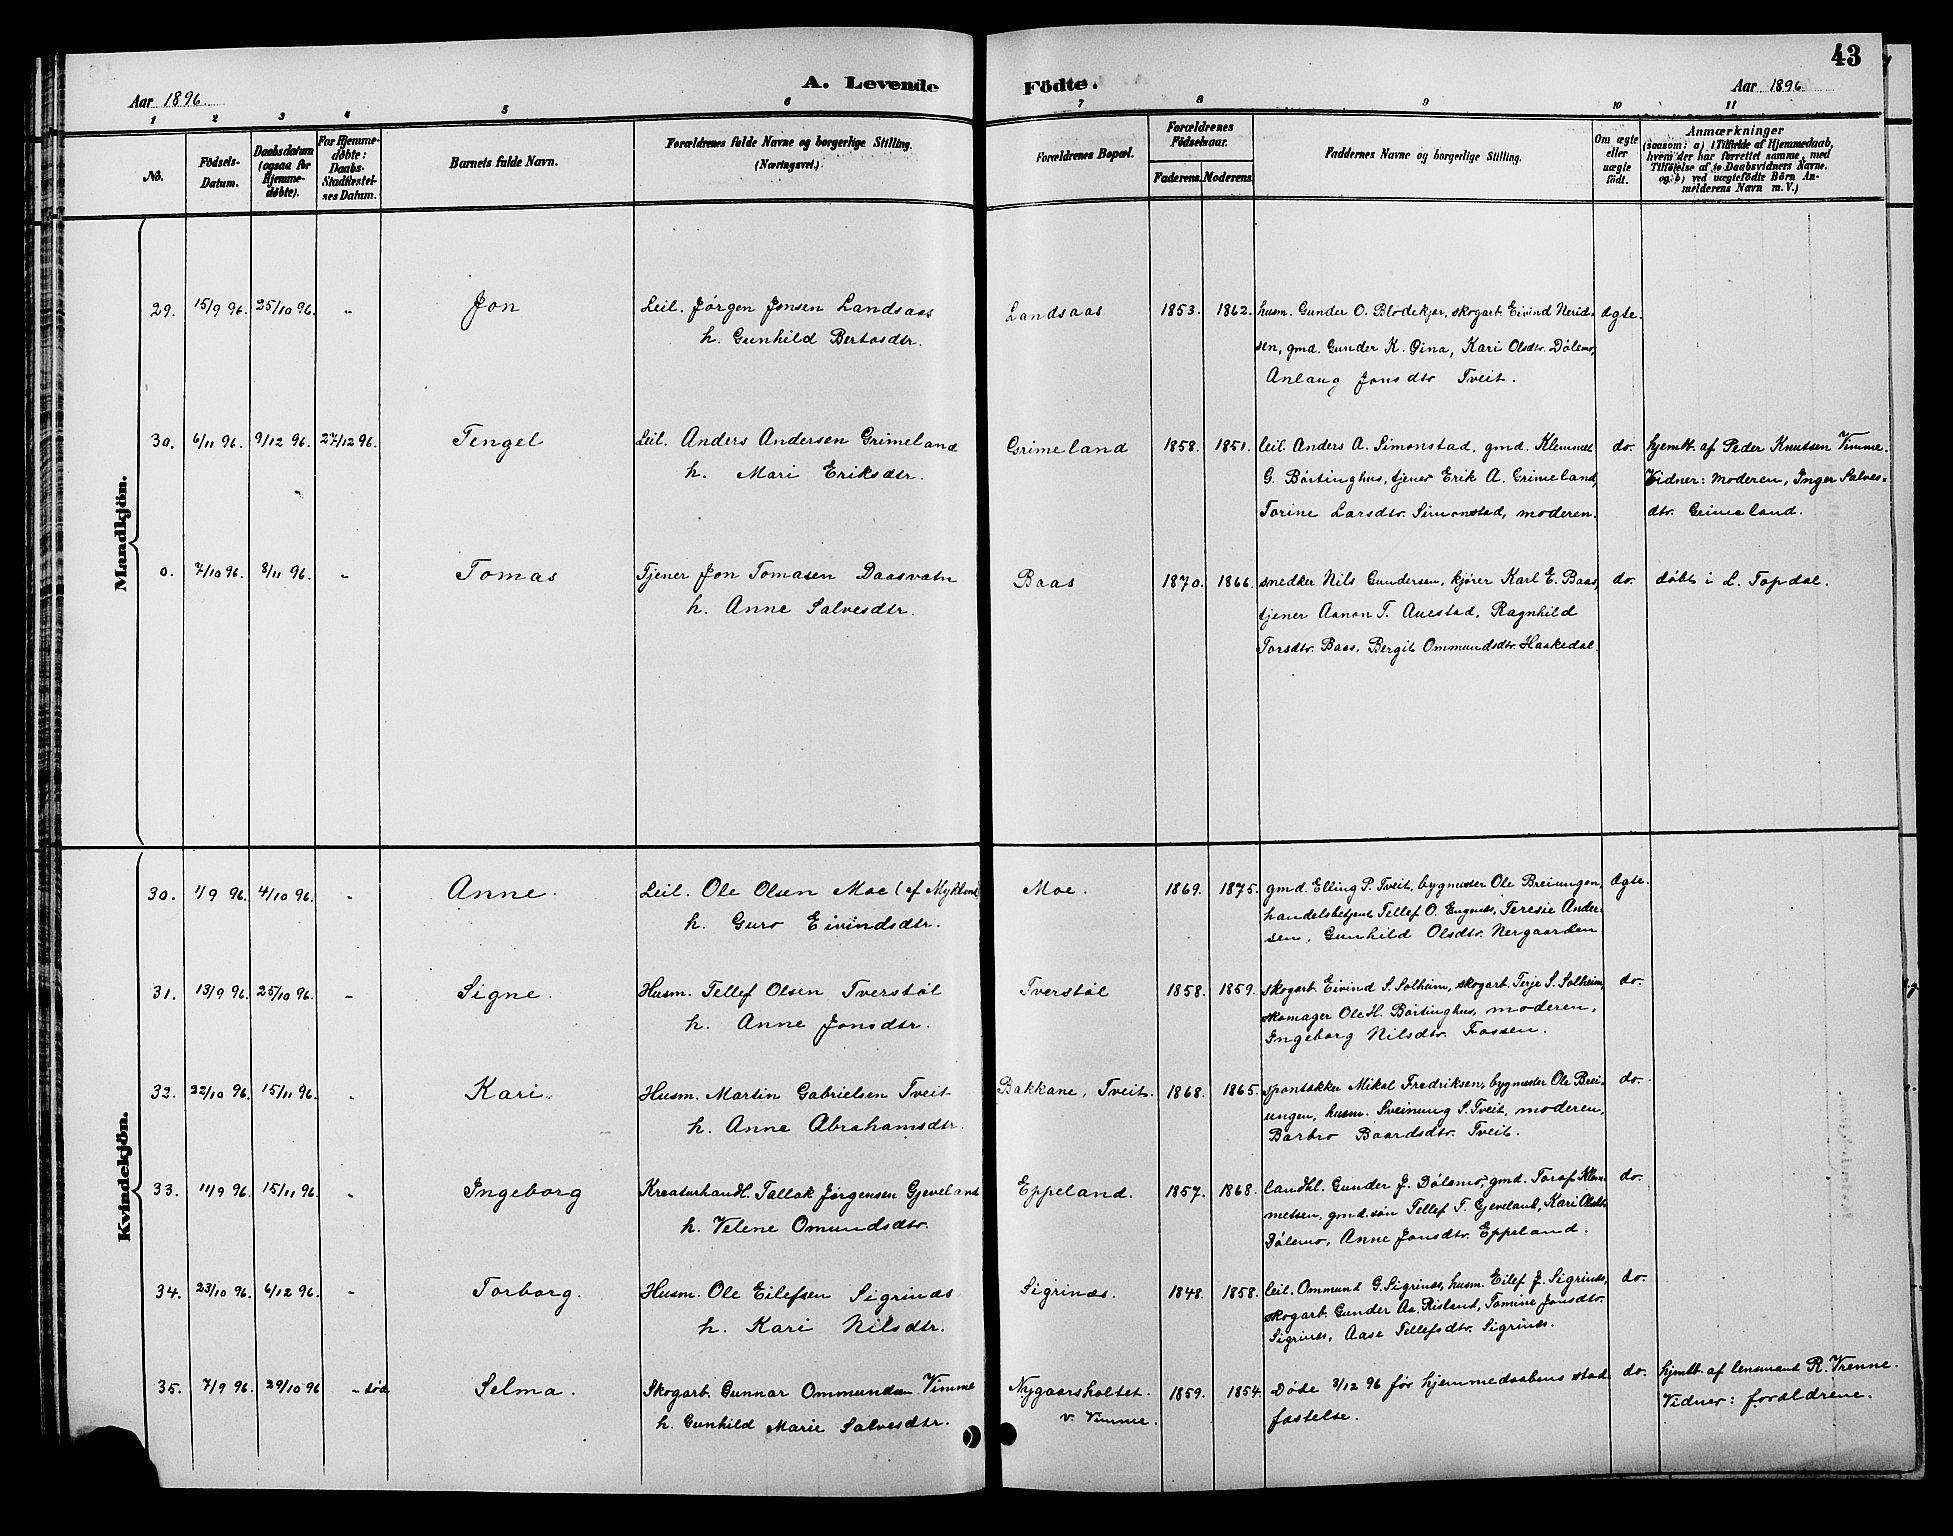 43
A. Levende Födte.
Aar 1896.
Aar 1896
1 2 3 4 5 6 7 8 9 10 11
No.
Födsels-Datum.
Daabsdatum (ogsaa for Hjemmedöbte).
For Hjemmedøbte: Daabs-Stadfæstelses Datum.
Barnets fulde Navn.
Forældrenes fulde Navne og borgerlige Stilling. (Næringsvei.)
Forældrenes Bopæl.
Forældrenes Födselsaar.
Faderens. Moderens.
Faddernes Navne og borgerlige Stilling.
Om ægte eller uægte födt.
Anmærkninger
(saasom: a) i Tilfælde af Hjemmedaab, hvem der har forrettet samme, med Tilföielse af to Daabsvidners Navne, og b) ved uægtefödte Börn Anmelderens Navn m. V.)
Mandkjön.
29. 15/9 96. 25/10 96. " Jon Leil. Jørgen Jonsen Landsaas Landsaas 1853. 1862. husm. Gunder O. Blodekjær, skogarb. Eivind Nerid- Ægte.
h. Gunhild Bertosdtr. sen, gmd. Gunder K. Øina, Kari Olsdtr. Dølemo,
Anlaug Jonsdtr Tveit.
30. 6/11 96. 9/12 96. 27/12 96. Tengel Leil. Anders Andersen Grimeland Grimeland 1858. 1851. leil. Anders A. Simonstad, gmd. Klemmet do. hjemdt. af Peder Knutsen Vimme.
h. Mari Eriksdtr. G. Børtinghus, tjener Erik A. Grimeland, Vidner: Moderen, Inger Salves-
Torine Larsdtr. Simonstad, moderen. dtr. Grimeland.
0. 7/10 96. 8/11 96. " Tomas Tjener Jon Tomasen Daasvatn Baas 1870. 1866. snedker Nils Gundersen, kjører Karl E. Baas, do. døbt i L. Topdal.
h. Anne Salvesdtr. tjener Aanon T. Auestad, Ragnhild
Torsdtr. Baas, Bergit Ommundsdtr. Haakedal.
Kvindekjön.
30. 1/9 96. 4/10 96. " Anne. Leil. Ole Olsen Moe (af Mykland Moe. 1869. 1875. gmd. Elling P. Tveit, bygmester Ole Breiungen, Ægte.
h. Guro Eivindsdtr. handelsbetjent Tellef O. Engenes, Teresie Ander-
sen, Gunhild Olsdtr. Nergaarden
31. 13/9 96. 25/10 96. " Signe. Husm. Tellef Olsen Tverstøl Tverstøl 1858. 1859. skogarb. Eivind S. Solheim, skogarb. Terje S. Solheim, do.
h. Anne Jonsdtr. skomager Ole H. Børtinghus, moderen,
Ingeborg Nilsdtr. Fossen.
32. 22/10 96. 15/11 96. " Kari. Husm. Martin Gabrielsen Tveit Bakkane, Tveit. 1868. 1865. spontakker Mikal Fredriksen, bygmester Ole Brei- do.
h. Anne Abrahamsdtr. ungen, husm. Sveinung S. Tveit, moderen,
Barbro Baardsdtr. Tveit.
33. 11/9 96. 15/11 96. " Ingeborg Kreaturhandl. Tallak Jørgensen Gjeveland Eppeland. 1857. 1868. landhl. Gunder J. Dølemo, gmd. Toraf Klem- do.
h. Velene Omundsdtr. metsen, gmd. søn Tellef T. Gjeveland, Kari Olsdtr.
Dølemo, Anne Jonsdtr. Eppeland.
34. 23/10 96. 6/12 96. " Torborg. Husm. Ole Eilefsen Sigrinæs Sigrinæs. 1848. 1858. leil. Ommund G. Sigrinæs, husm. Eilef J. Sigrinæs, do.
h. Kari Nilsdtr. skogarb. Gunder Aa. Risland, Tomine Jonsdtr.
Sigrinæs, Aase Tellefsdtr. Sigrinæs.
35. 7/9 96. 29/10 96 " død Selma. Skogarb. Gunnar Ommundsen Vimme Nygaarsholtet. 1859. 1854. Døde 3/12 96 før hjemmedaabens stad- do. hjemdt. af lensmand R. Vrenne.
h. Gunhild Marie Salvesdtr. v. Vimme. fæstelse. Vidner: forældrene.